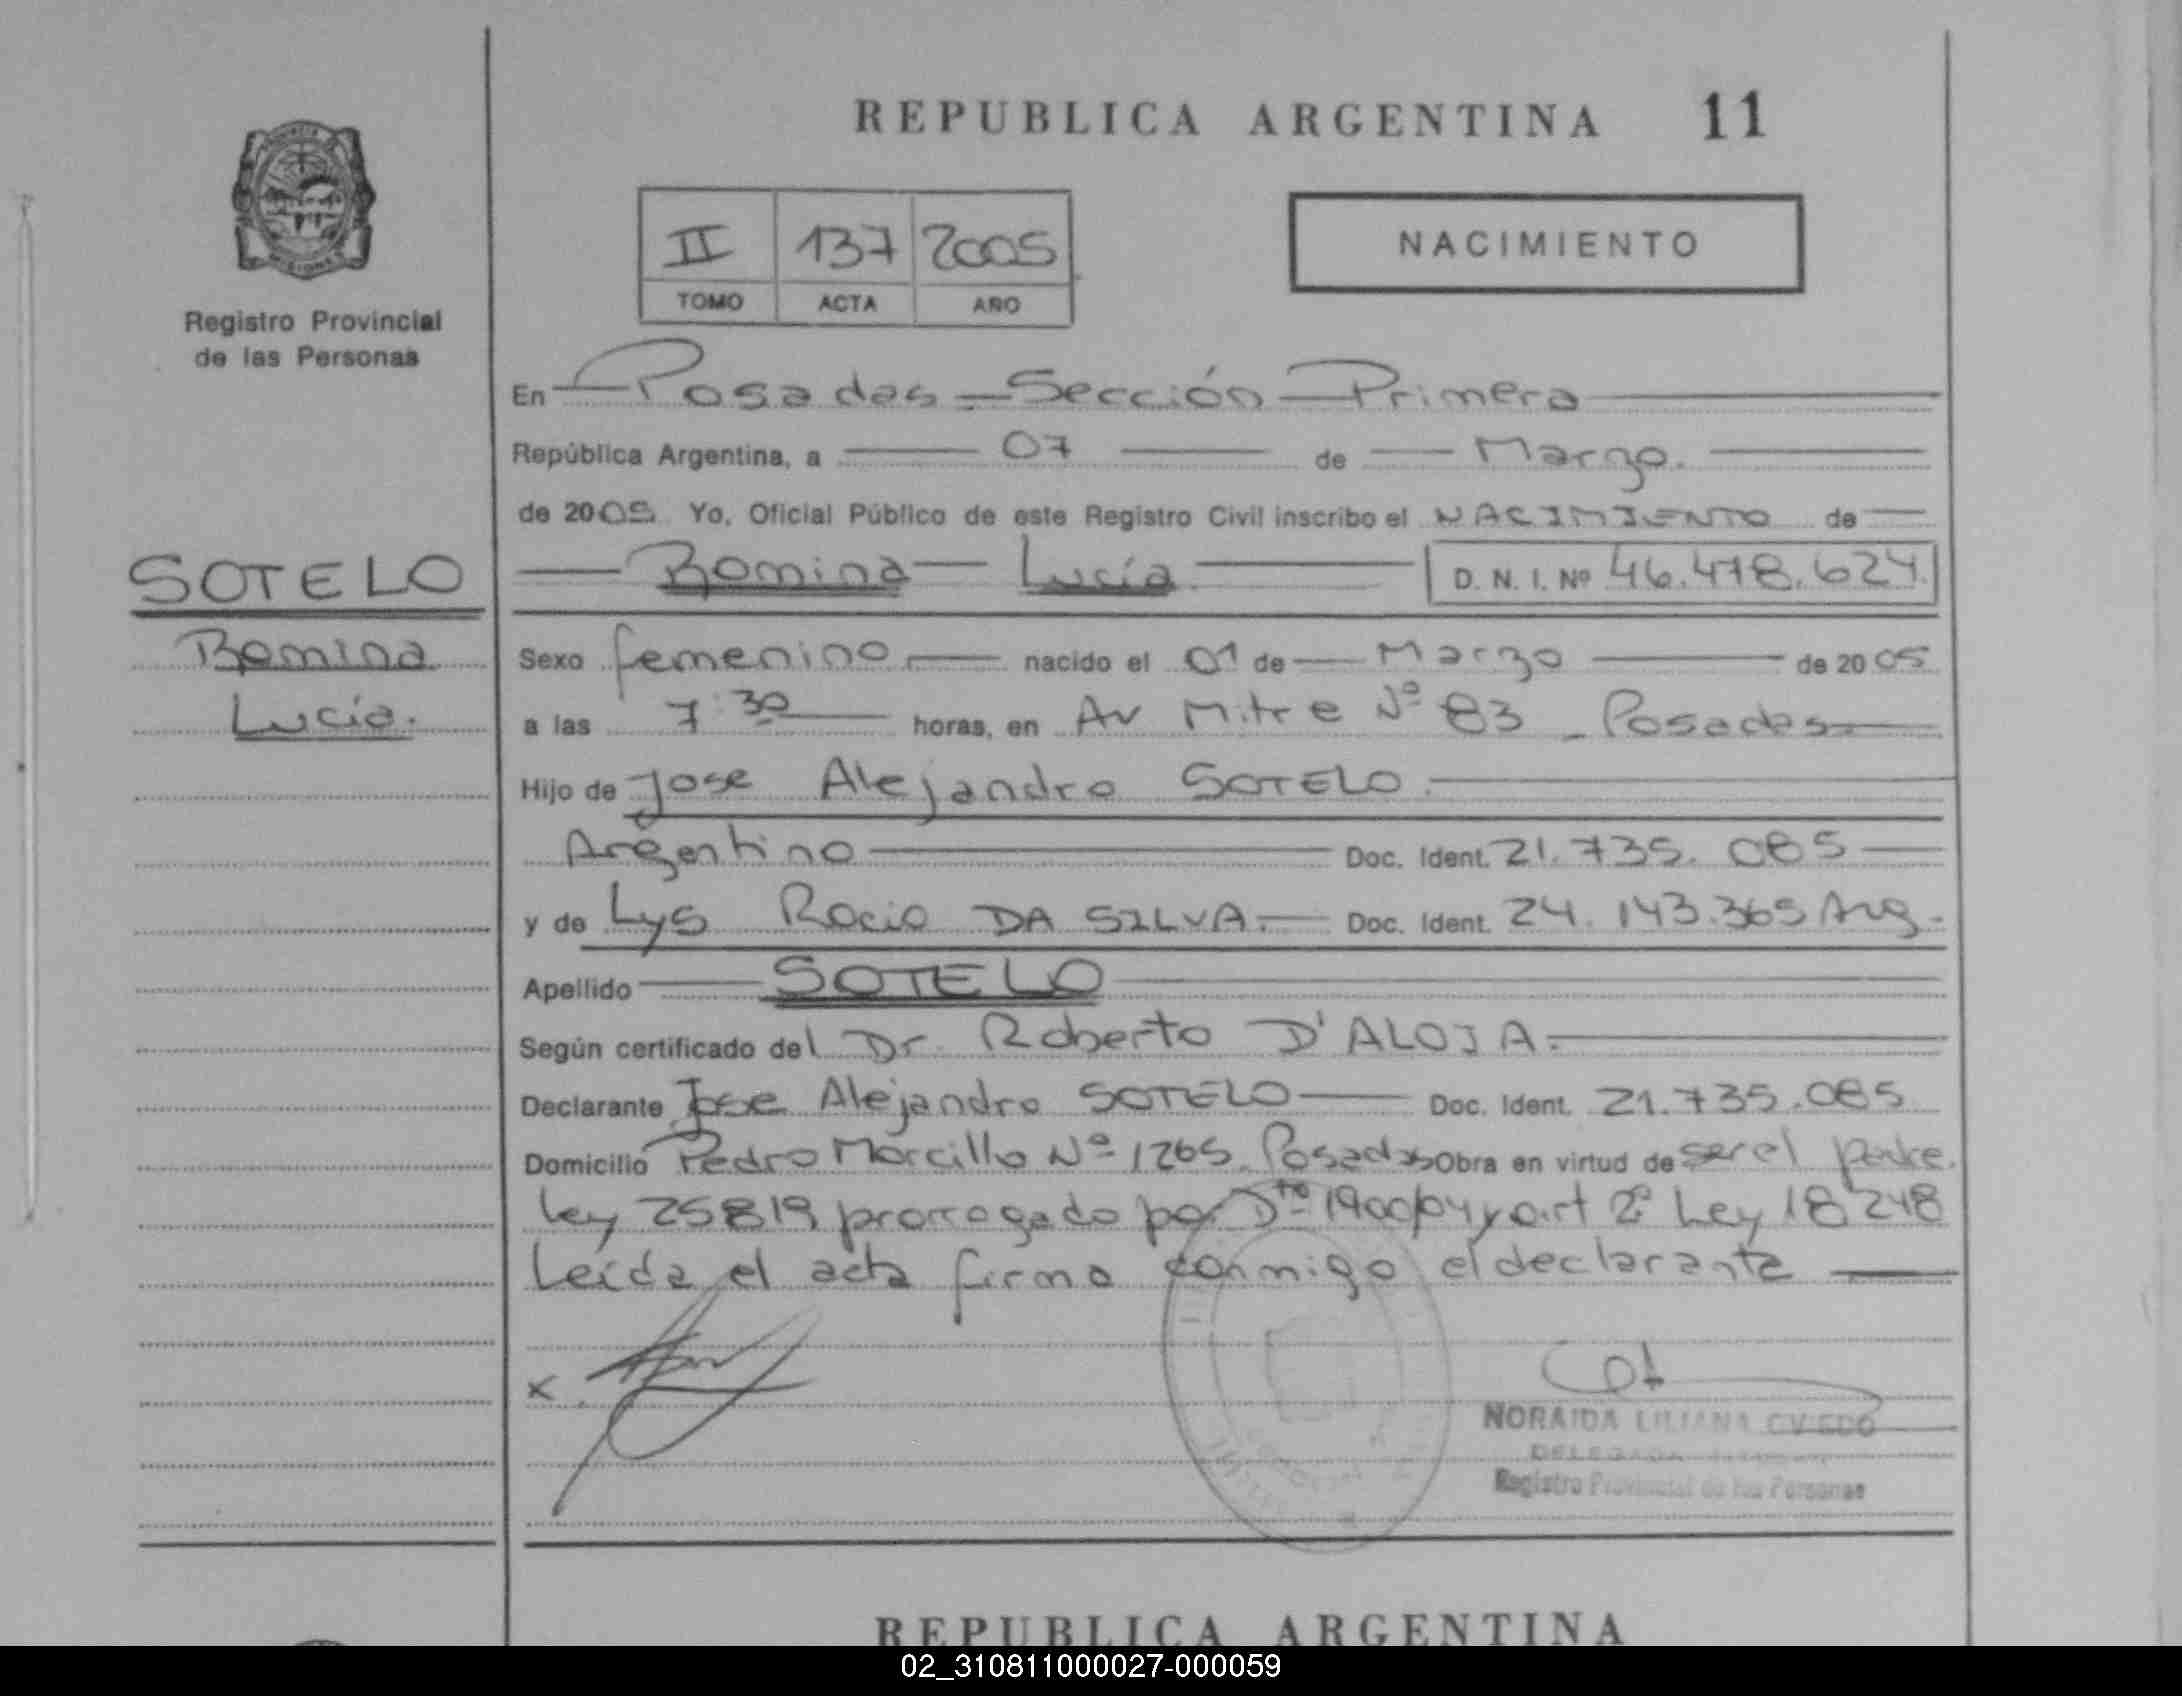 REPUBLICA ARGENTINA 11
PROVINCIA
MISIONES
Registro Provincial
de las Personas
II 137 2005
TOMO ACTA AÑO
NACIMIENTO
En Posadas - Sección Primera
República Argentina, a 07 de Marzo.
de 2005 Yo, Oficial Público de este Registro Civil inscribo el NACIMIENTO de
SOTELO
Romina
Lucía.
Romina Lucía D. N. I. Nº 46.478.624
Sexo femenino nacido el 01 de Marzo de 2005
a las 7:30 horas, en Av Mitre Nº 83 - Posadas
Hijo de Jose Alejandro SOTELO
Argentino Doc. Ident. 21.735.085
y de Lys Rocio DA SILVA.- Doc. Ident. 24.143.365 Arg.
Apellido SOTELO
Según certificado del Dr. Roberto D'ALOJA.
Declarante Jose Alejandro SOTELO Doc. Ident. 21.735.085
Domicilio Pedro Morcillo Nº 1265 Posadas Obra en virtud de ser el padre.
Ley 25819 prorrogado por Dto 1900/04 y art 2º Ley 18248
Leída el acta firma conmigo el declarante
x.
NORAIDA LILIANA OVIEDO
DELEGADA
Registro Provincial de las Personas
REPUBLICA ARGENTINA
02_310811000027-000059